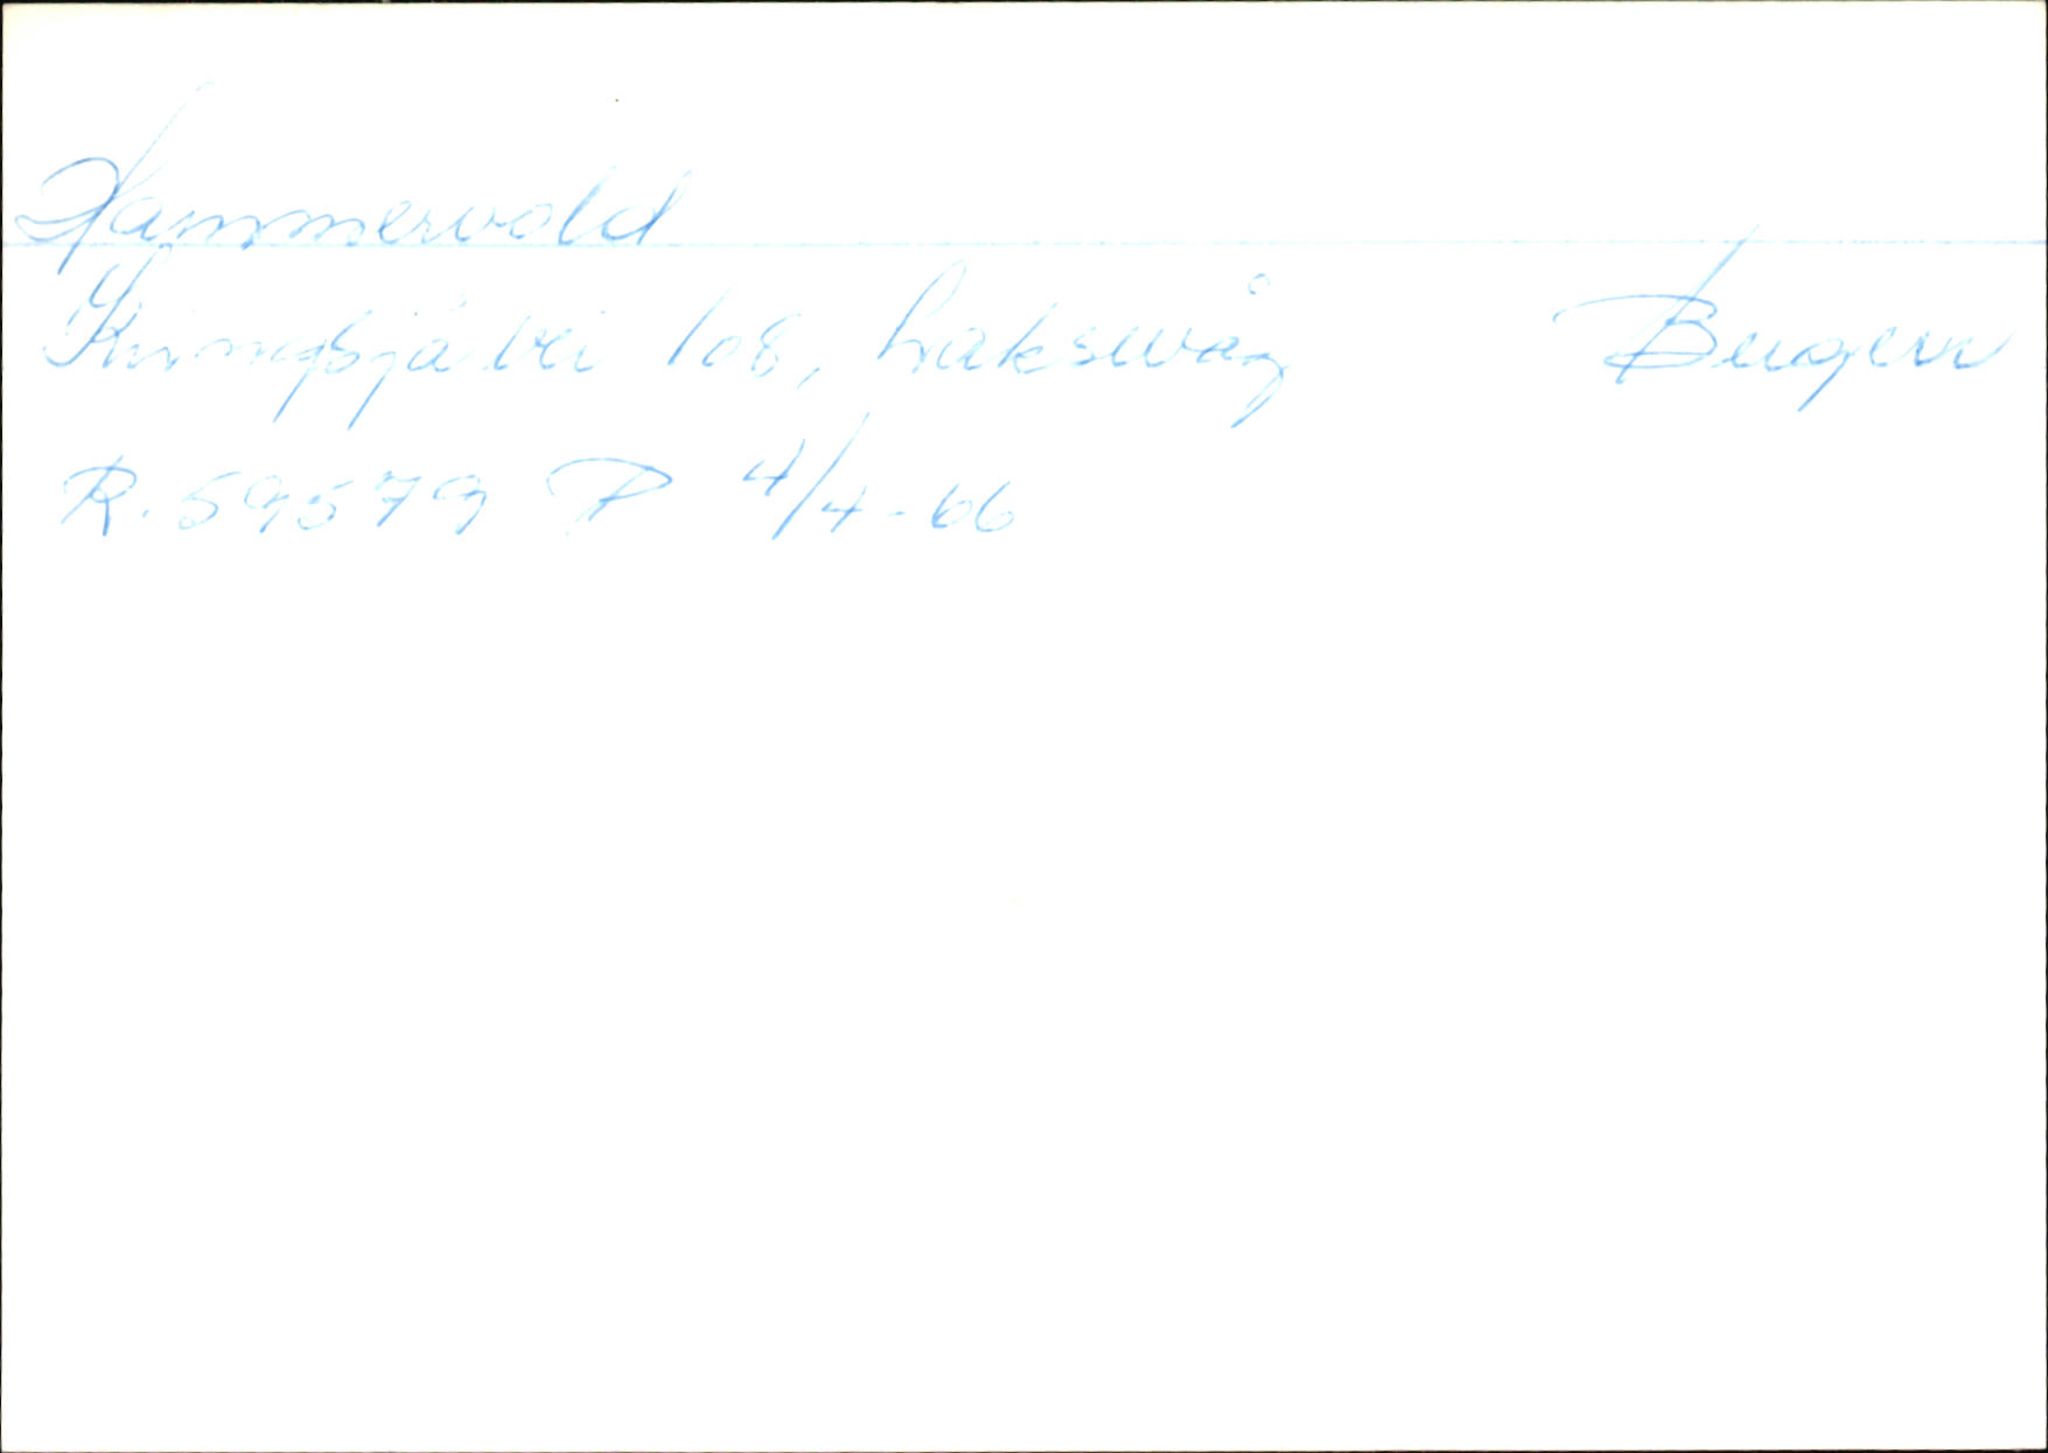 Hammervold
Kringsjå vei 108, Laksevåg Bergen
R. 59579 P 4/4-66